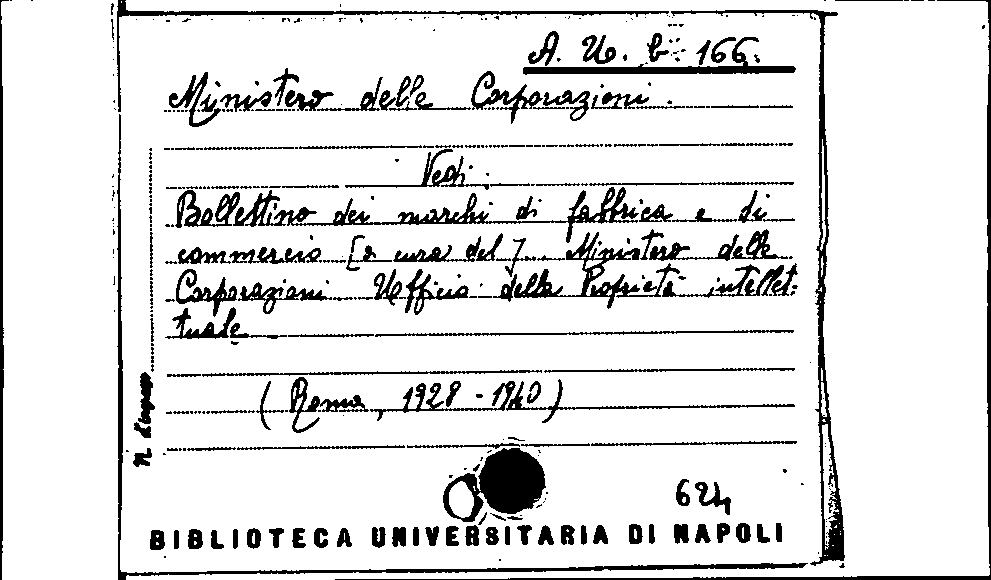 A. U. b. 166.
Ministero delle Corporazioni.
Vedi:
Bollettino dei marchi di fabbrica e di
commercio [a cura del]... Ministero delle
Corporazioni. Ufficio della Proprietà intellet-
tuale.
(Roma, 1928-1940)
N. d'ingresso
624
BIBLIOTECA UNIVERSITARIA DI NAPOLI